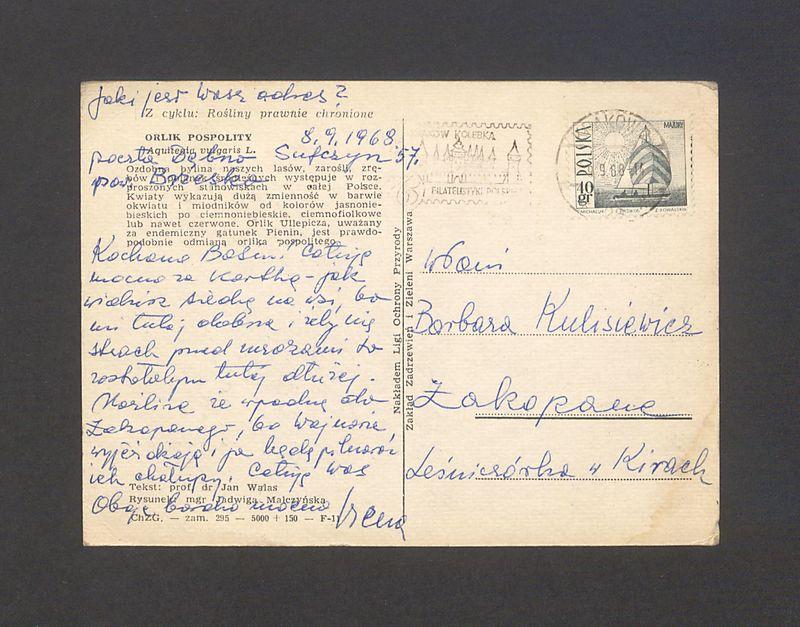 Jaki jest Wasz adres?
Z cyklu: Rośliny prawnie chronione
ORLIK POSPOLITY
8.9.1968
Aquilegia vulgaris L.
poczta Dębno Sufczyn 57.
Ozdobna bylina naszych lasów, zarośli, zrę-
pow. Brzesko
bów występuje w roz-
proszonych stanowiskach w całej Polsce.
Kwiaty wykazują dużą zmienność w barwie
okwiatu i miodników od kolorów jasnonie-
bieskich po ciemnoniebieskie, ciemnofiolkowe
lub nawet czerwone. Orlik Ullepicza, uważany
za endemiczny gatunek Pienin, jest prawdo-
podobnie odmianą orlika pospolitego.
Kochana Basiu! Całuję
mocno za kartkę – jak
widzisz siedzę na wsi, bo
mi tutaj dobrze i żeby nie
strach przed mrozami to
zostałabym tutaj dłużej.
Możliwe że wpadnę do
Zakopanego, bo
wyjeżdżają i ja będę pilnować
ich chałupy. Całuję Was
Tekst: prof. dr Jan Walas
Rysunek: mgr Jadwiga Malczyńska
Oboje bardzo mocno Irena
ChZG. — zam. 295 — 5000 + 150 — F-11
Nakładem Ligi Ochrony Przyrody
Zakład Zadrzewień i Zieleni Warszawa
KRAKÓW KOLEBKA
FILATELISTYKI POLSKIEJ
KRAKÓW
9.68
POLSKA
40 gr
MAJDRY
Z. KOWALSKI
WPani
Barbara Kulisiewicz
Zakopane
Leśniczówka w Kirach